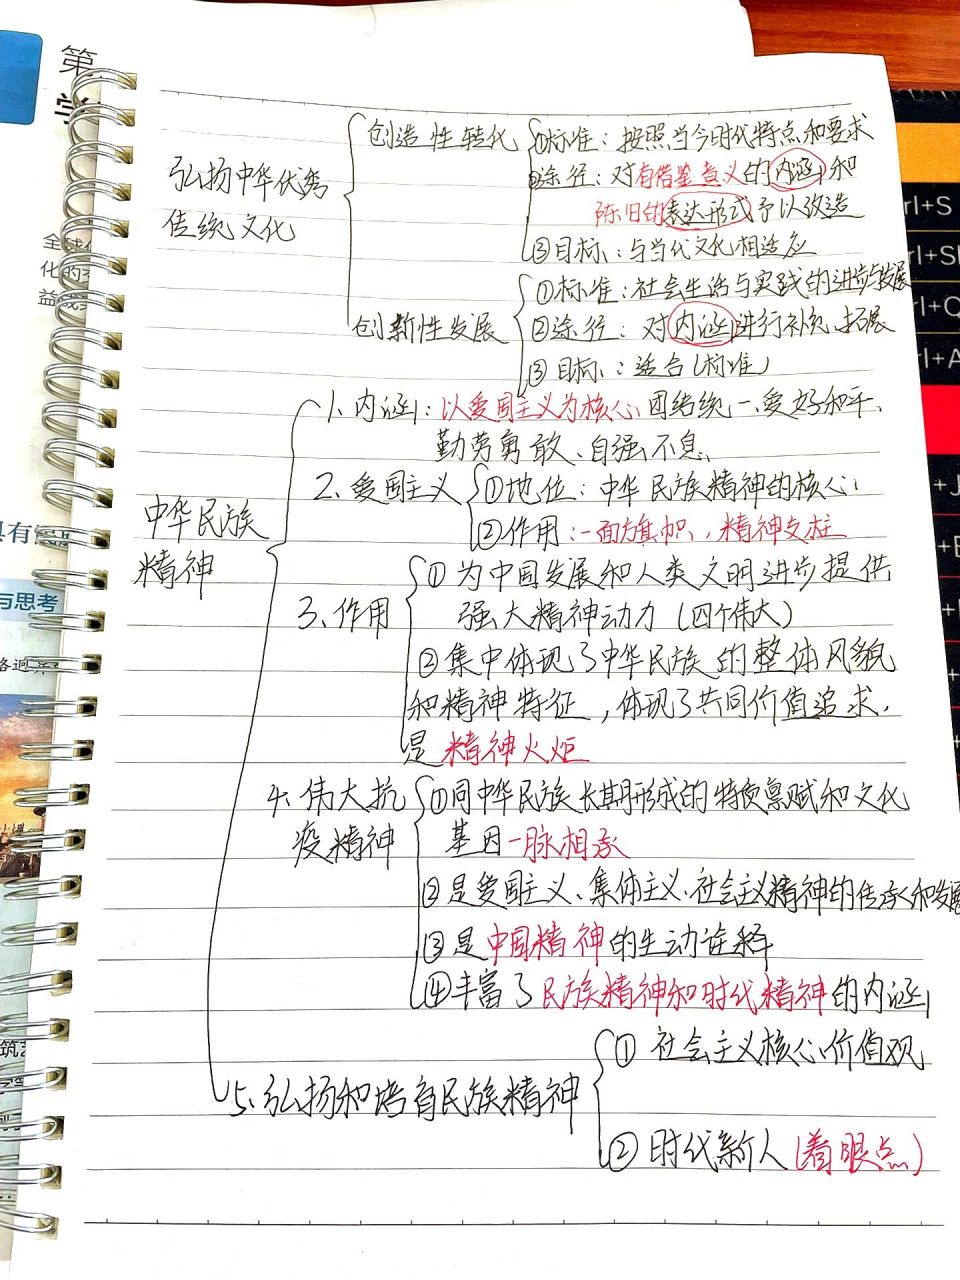 第
学
创造性转化
①标准：按照当今时代特点和要求
弘扬中华优秀
传统文化
②途径：对有借鉴意义的内涵和
陈旧的表达形式予以改造
③目标：与当代文化相适应
创新性发展
①标准：社会生活与实践的进步与发展
②途径：对内涵进行补充、拓展
③目标：适合(标准)
中华民族
精神
1、内涵：以爱国主义为核心 团结统一、爱好和平、
勤劳勇敢、自强不息
2、爱国主义
①地位：中华民族精神的核心
②作用：一面旗帜，精神支柱
3、作用
①为中国发展和人类文明进步提供
强大精神动力(四个伟大)
②集中体现了中华民族的整体风貌
和精神特征，体现了共同价值追求，
是精神火炬
4、伟大抗
疫精神
①同中华民族长期形成的特质禀赋和文化
基因一脉相承
②是爱国主义、集体主义、社会主义精神的传承和发展
③是中国精神的生动诠释
④丰富了民族精神和时代精神的内涵
5、弘扬和培育民族精神
①社会主义核心价值观
②时代新人(着眼点)
化的
与思考
rl+S